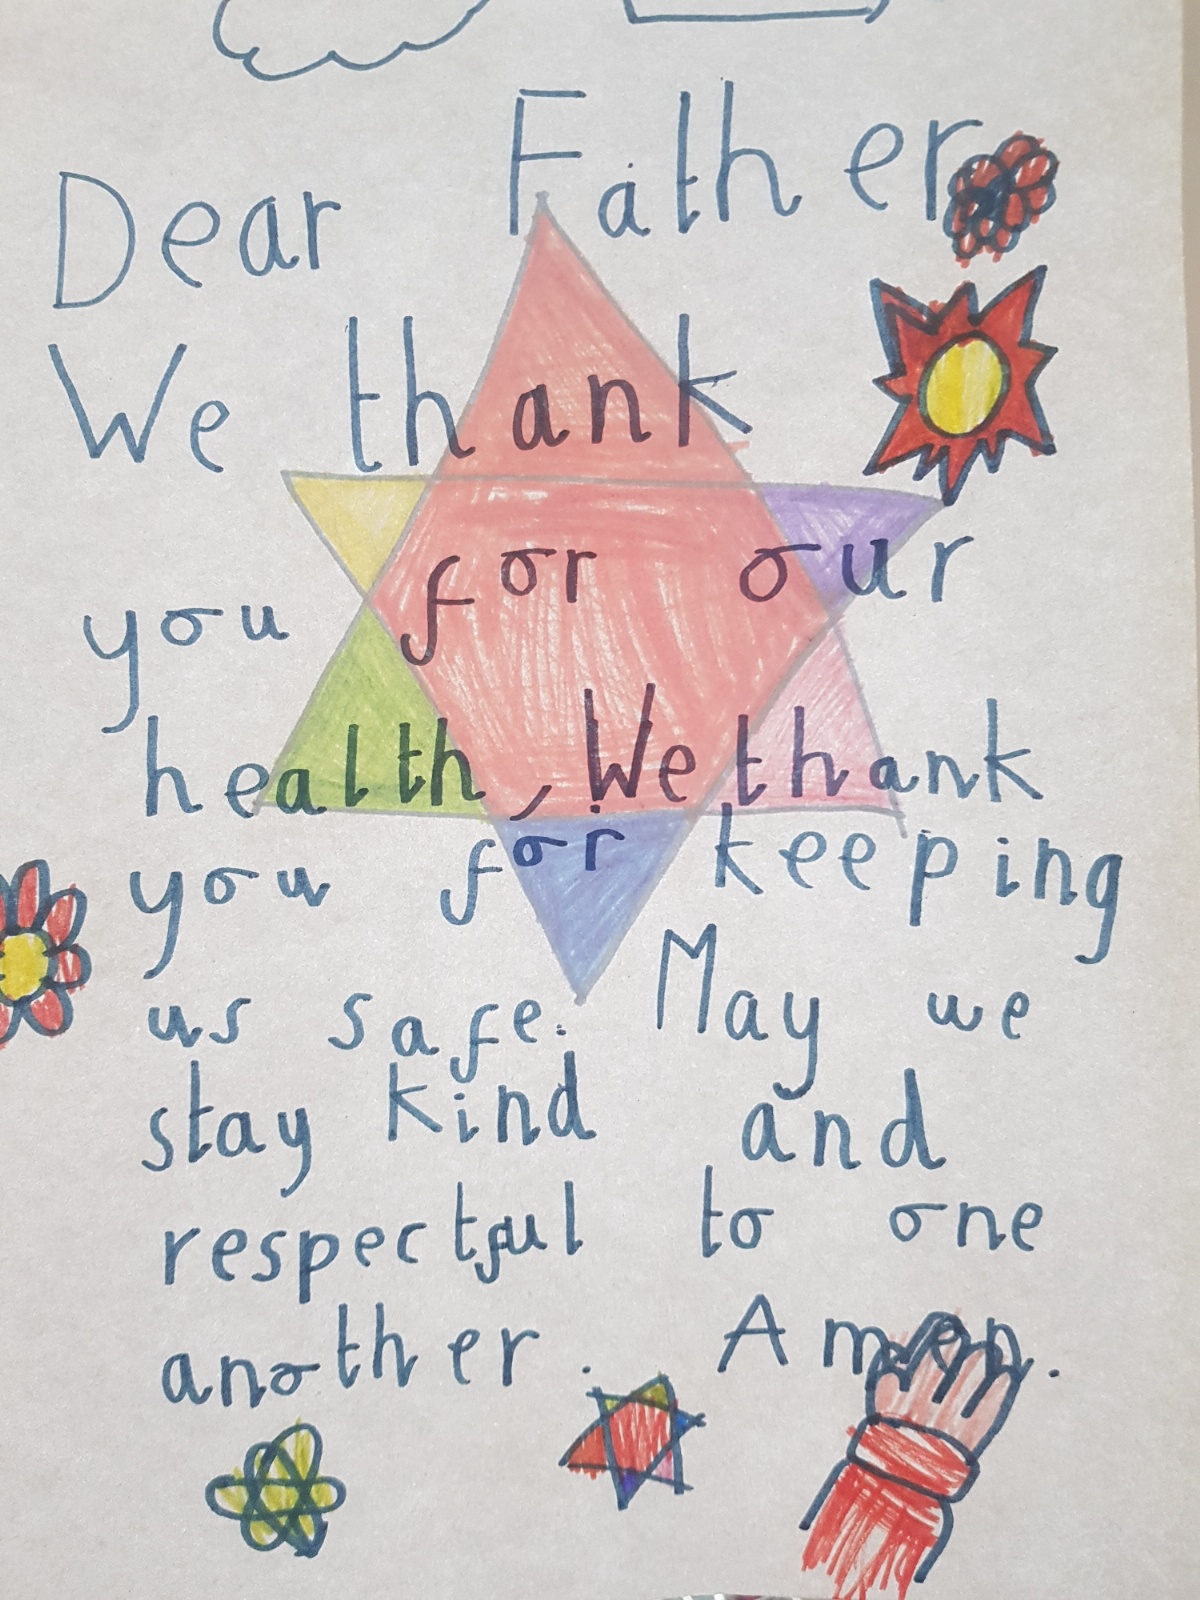 Dear Father
We thank
you for our
health, We thank
you for keeping
us safe. May we
stay kind and
respectful to one
another. Amen.